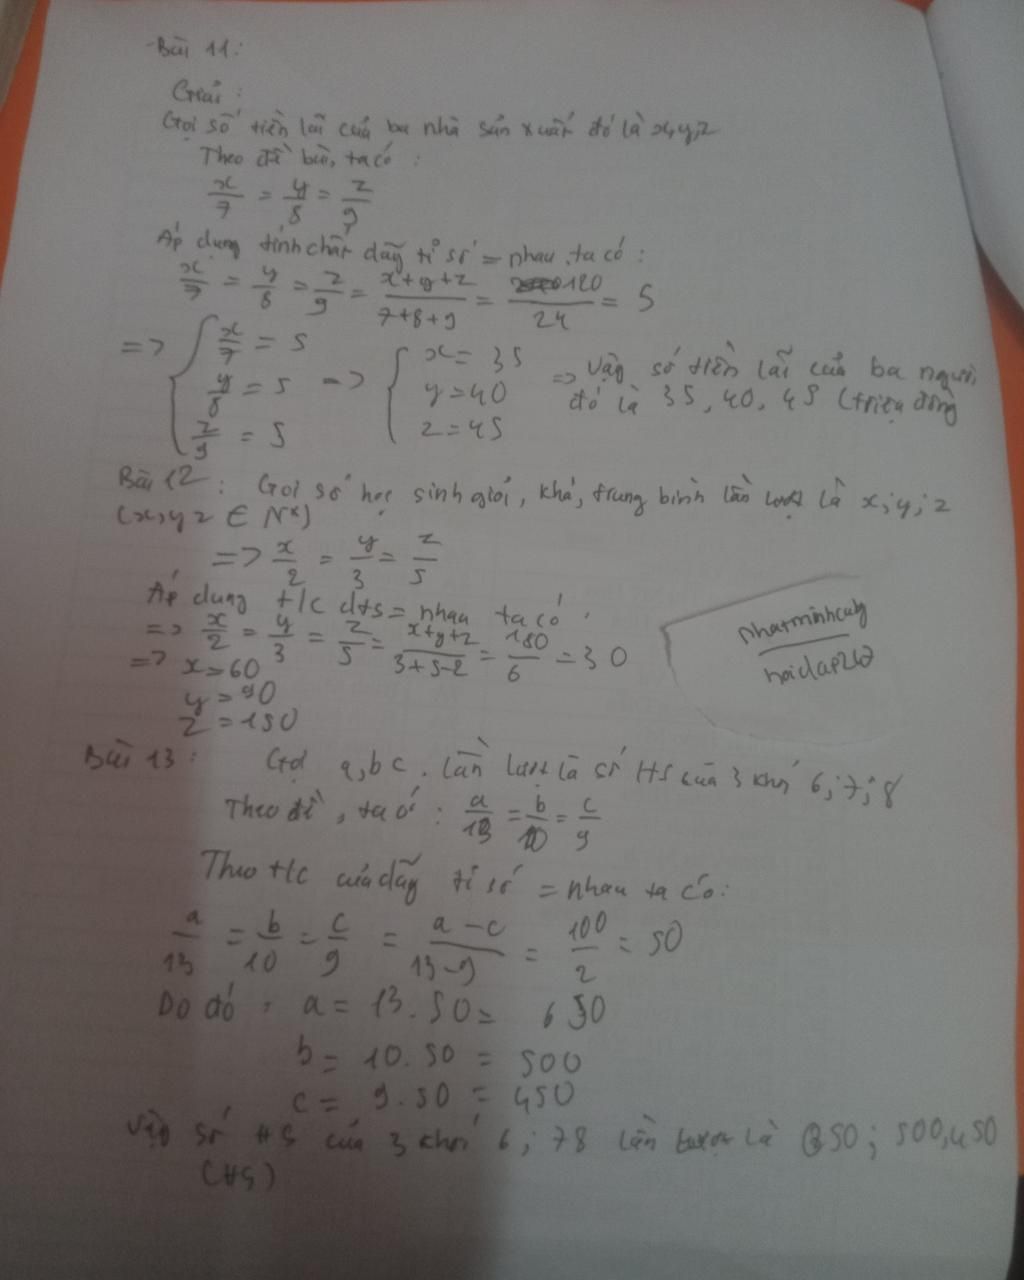 Bài 11:
Giải:
Gọi số tiền lãi của ba nhà sản xuất đó là x,y,z
Theo đề bài, ta có:
x/7 = y/8 = z/9
Áp dụng tính chất dãy tỉ số = nhau, ta có:
x/7 = y/8 = z/9 = x+y+z/7+8+9 = 120/24 = 5
=> { x/7 = 5 => { x = 35 => Vậy số tiền lãi của ba người
y/8 = 5 y = 40 đó là 35, 40, 45 (triệu đồng
z/9 = 5 z = 45
Bài 12: Gọi số học sinh giỏi, khá, trung bình lần lượt là x;y;z
(x,y z ∈ N*)
=> x/2 = y/3 = z/5
Áp dụng t/c dts = nhau ta có
=> x/2 = y/3 = z/5 = x+y+z/3+5-2 = 180/6 = 30
=> x=60
y=90
z=150
nhatminhcung
hoidap247
Bài 13: Gọi a,b c. lần lượt là số HS của 3 khối 6;7;8
Theo đề, ta có: a/13 = b/10 = c/9
Theo t/c của dãy tỉ số = nhau ta có:
a/13 = b/10 = c/9 = a-c/13-9 = 100/2 = 50
Do đó: a = 13.50 = 650
b = 10.50 = 500
c = 9.50 = 450
Vậy số HS của 3 khối 6; 78 lần lượt là 650; 500,450
(HS)